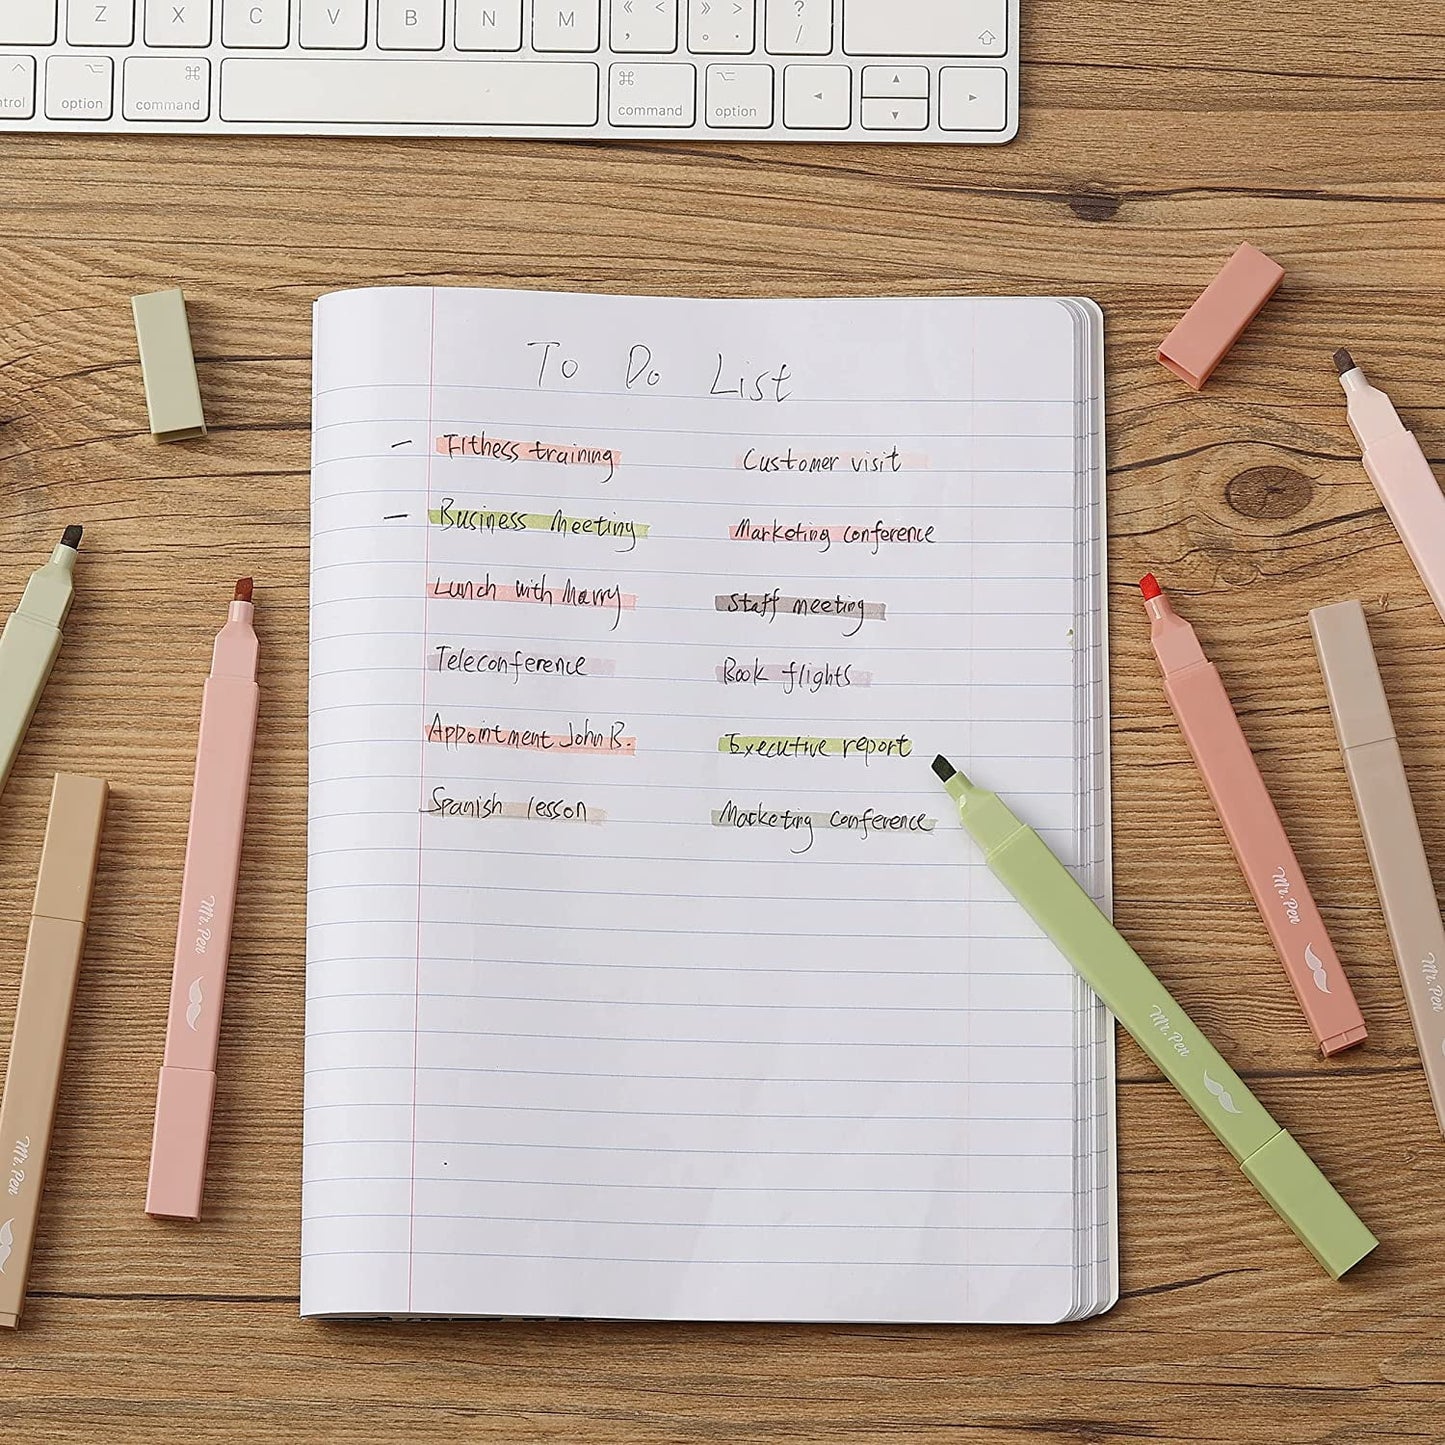 Z X C V B N M « < , » > . ? /
option command command option
To Do List
- Fithess training
Customer visit
- Business Meeting
Marketing conference
Lunch with Marry
Staff meeting
Teleconference
Book flights
Appointment John B.
Executive report
Spanish lesson
Marketing conference
Mr. Pen
Mr. Pen
Mr. Pen
Mr. Pen
Mr. Pen